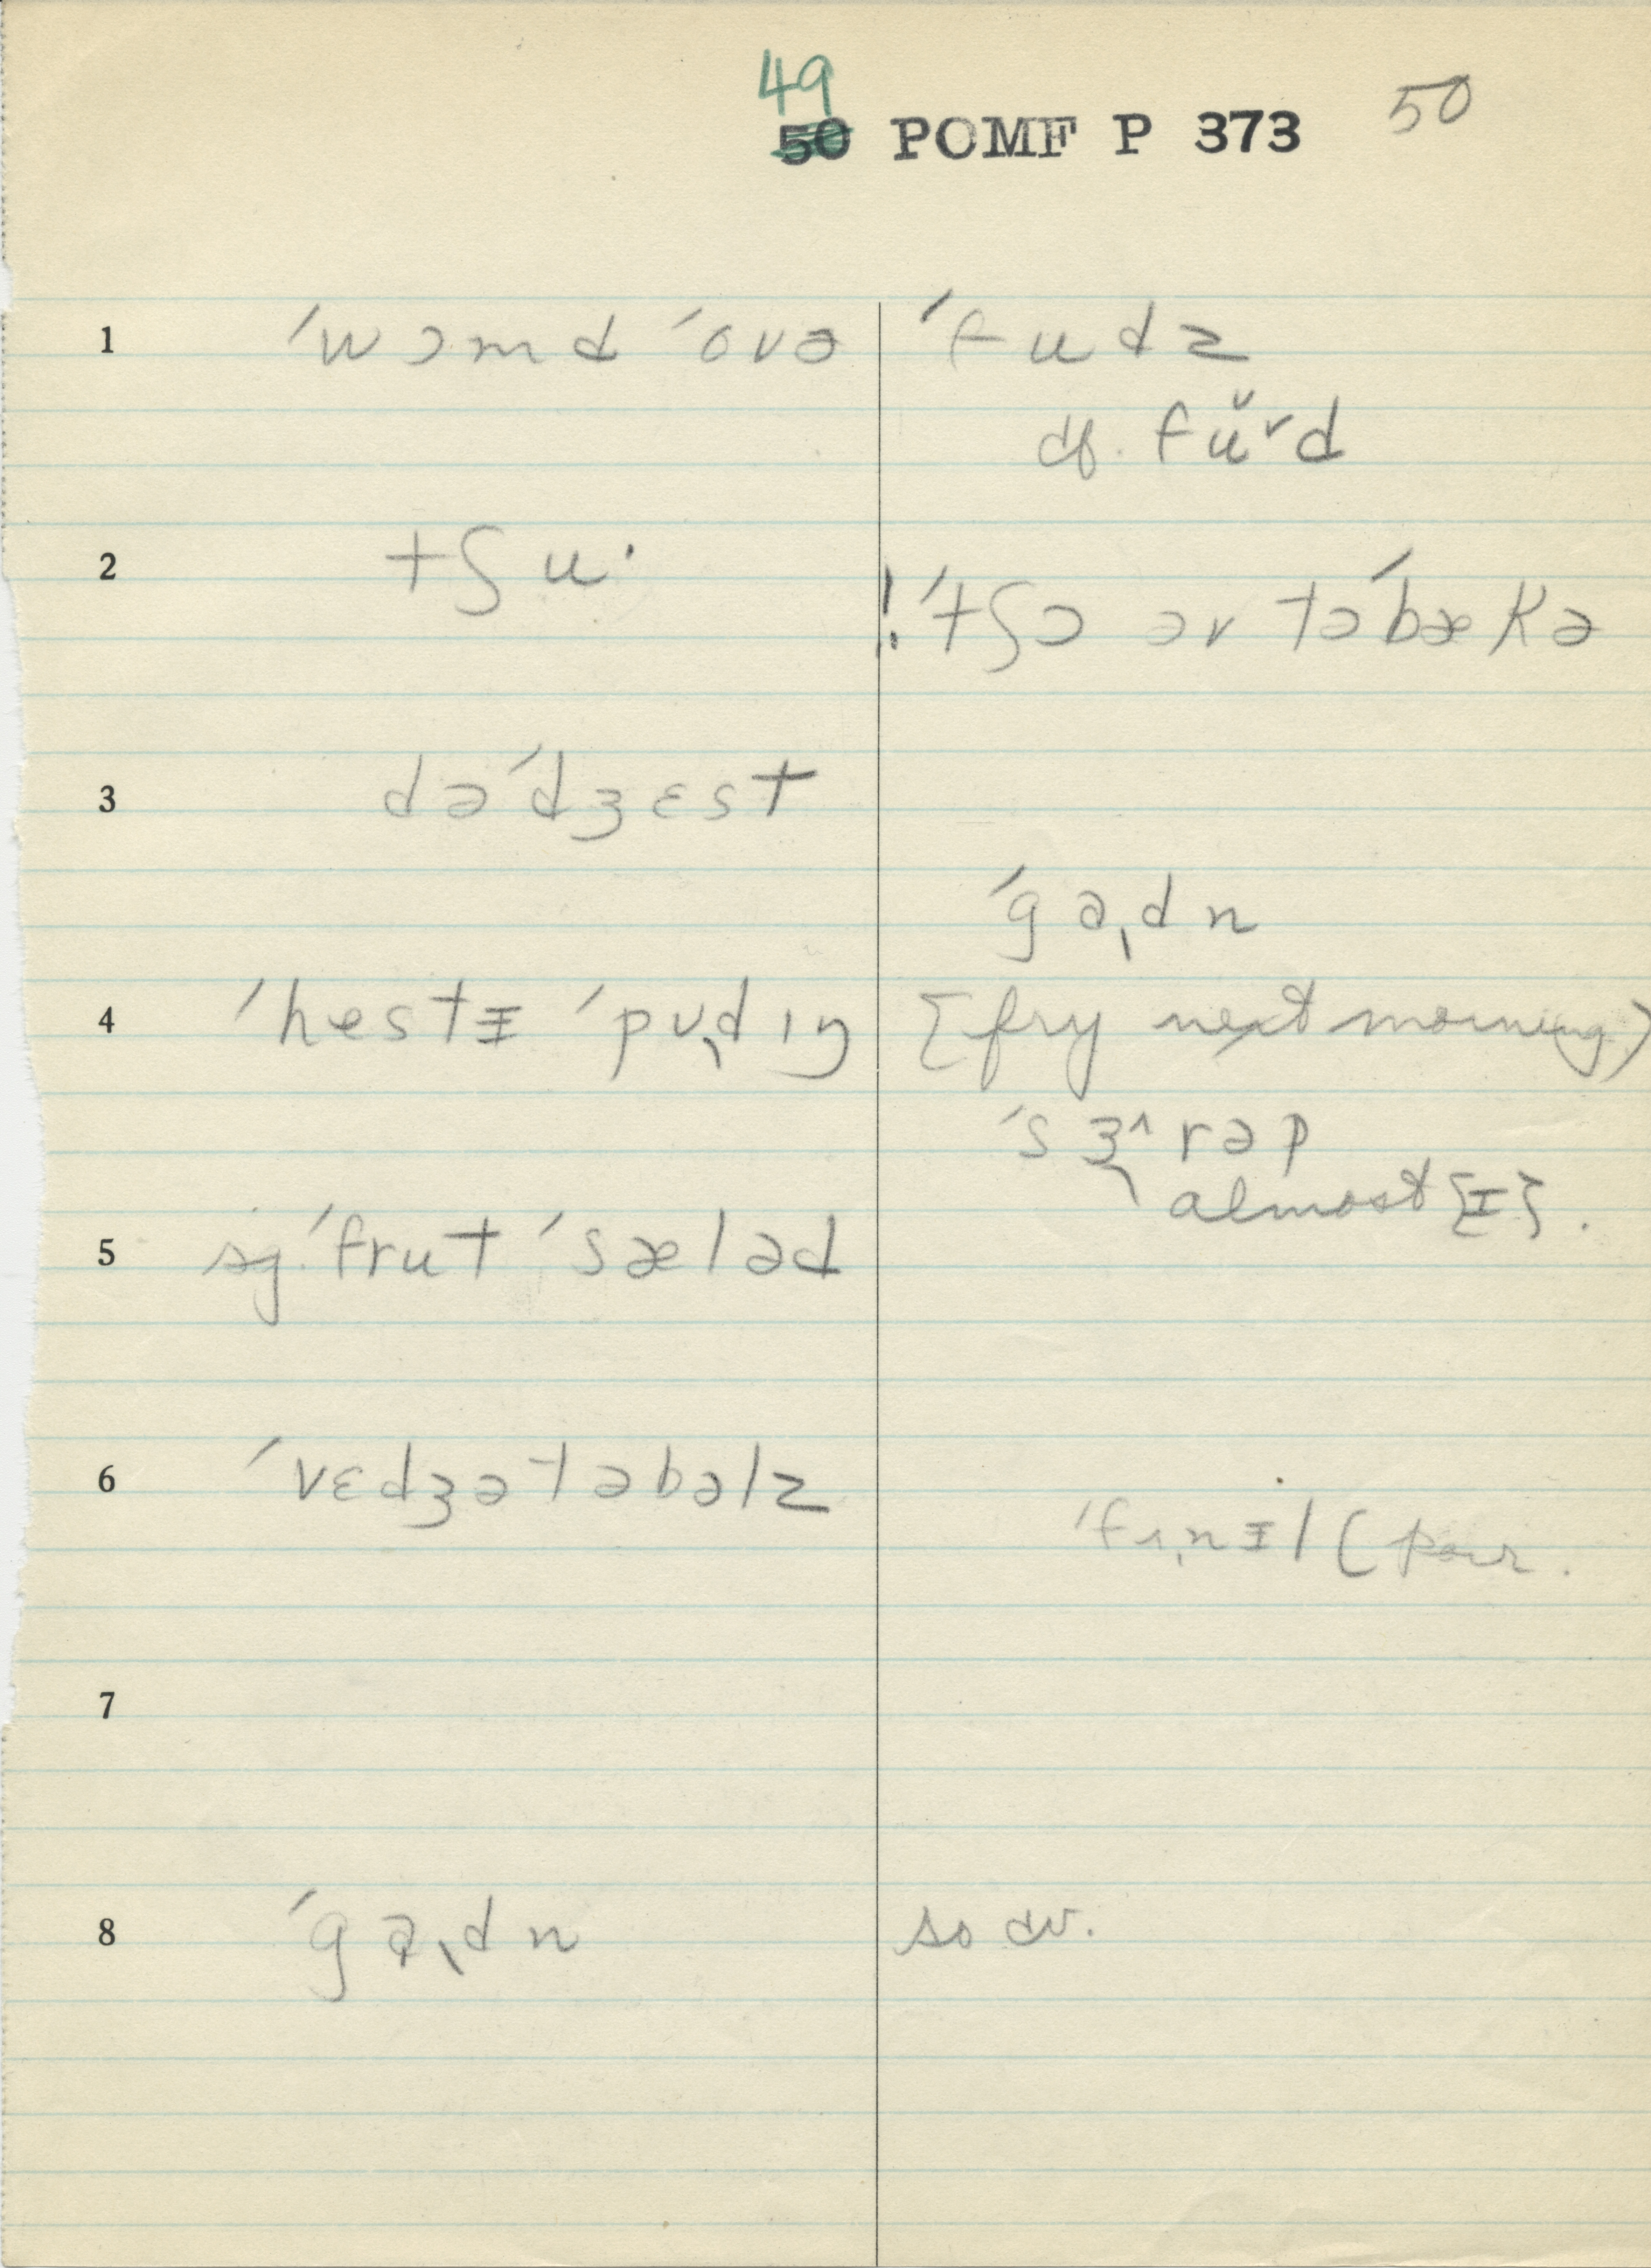 49
50 POMF P 373 50
1 ˈwɔmd ˈovə ˈfudz
df. fŭᵛd
2 tʃuˑ !ˈtʃɔ əv təˈbækə
3 dəˈdʒɛst
ˈgaˎdn
4 ˈhestɪ ˈpʊˎdɪŋ [fry next morning)
ˈsɜ^rəp
almost [ɪ].
5 sg. ˈfrut ˈsæləd
6 ˈvɛdʒətəbəlz
ˈfʌˎnɪl (pour.
7
8 ˈgaˎdn so aw.